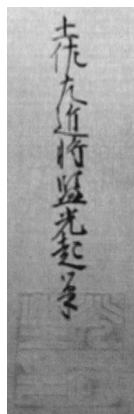 土佐左近将監光起筆